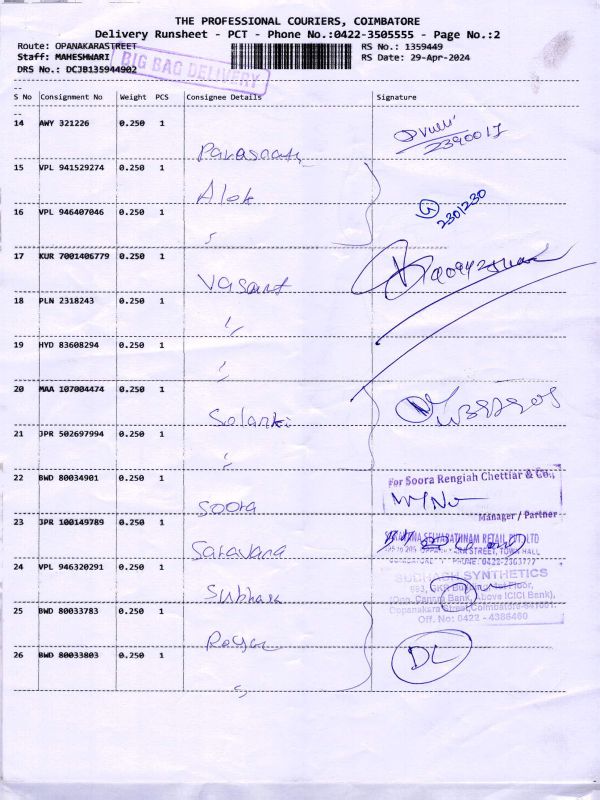 THE PROFESSIONAL COURIERS, COIMBATORE
Delivery Runsheet - PCT - Phone No.:0422-3505555 - Page No.:2
Route: OPANAKARASTREET RS No.: 1359449
Staff: MAHESHWARI RS Date: 29-Apr-2024
DRS No.: DCJB135944902
BIG BAG DELIVERY
S No Consignment No Weight PCS Consignee Details Signature
14 AWY 321226 0.250 1
15 VPL 941529274 0.250 1
Alok
16 VPL 946407046 0.250 1
2301230
17 KUR 7001406779 0.250 1
Vasant
18 PLN 2318243 0.250 1
19 HYD 83608294 0.250 1
20 MAA 107004474 0.250 1
Solanki
21 JPR 502697994 0.250 1
22 BWD 80034901 0.250 1
For Soora Rengiah Chettiar & Co.,
Soora
Manager / Partner
23 JPR 100149789 0.250 1
Saravana
SELVARATHNAM RETAIL PVT LTD
STREET, TOWN HALL
PHONE: 0422-2303777
24 VPL 946320291 0.250 1
Subhash
SYNTHETICS
Ist Floor,
Canara Bank, Above ICICI Bank),
Oppanakara Street, Coimbatore-641001.
Off. No: 0422 - 4386460
25 BWD 80033783 0.250 1
26 BWD 80033803 0.250 1
DL